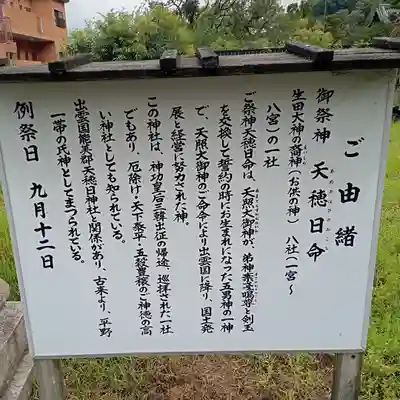 ご由緒
御祭神 天穂日命
あめのほひのみこと
生田大神の裔神（お供の神）八社（一宮～
八宮）の一社
ご祭神天穂日命は、天照大御神が、弟神素戔嗚尊と剣玉
を交換して誓約の時にお生まれになった五男神の一神
で、天照大御神のご命令により出雲国に降り、国土発
展と経営に努力された神。
この神社は、神功皇后三韓出征の帰途、巡拝された一社
でもあり、厄除け・天下泰平・五穀豊穣のご神徳の高
い神社としても知られている。
出雲国能義郡天穂日神社と関係があり、古来より、平野
一帯の氏神としてまつられている。
例祭日 九月十二日